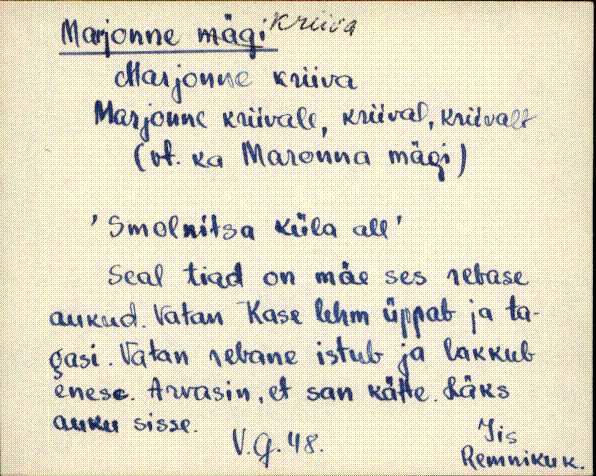 Marjonne mägi kriiva
Marjonne kriiva
Marjonne kriivale, kriival, kriivalt
(vt. ka Maronna mägi)
'Smolnitsa küla all'
Seal tiad on mäe ses rebase
aukud. Vatan Kase lehm üppab ja ta-
gasi. Vatan rebane istub ja lakkub
enese. Arvasin, et san kätte. Läks
auku sisse.
V.G. 48.
Jis
Remniku k.